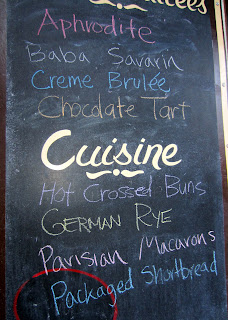 Aphrodite
Baba Savarin
Creme Brulée
Chocolate Tart
Cuisine
Hot Crossed Buns
GERMAN RYE
Parisian Macarons
Packaged Shortbread